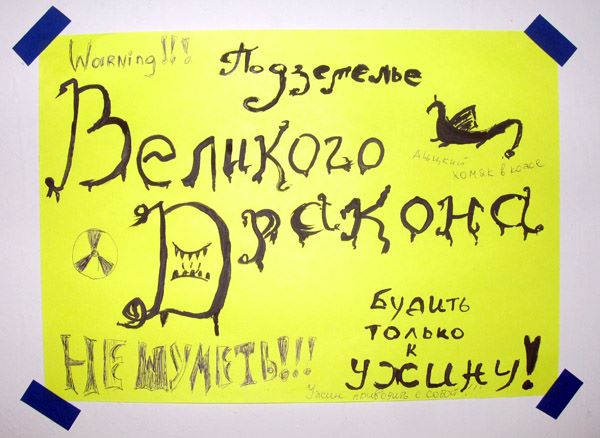 Warning!!!
Подземелье
Великого
Дракона
Аццкий
хомяк в коже
НЕ ШУМЕТЬ!!!
Будить
только
к
ужину!
Ужин приводить с собой!